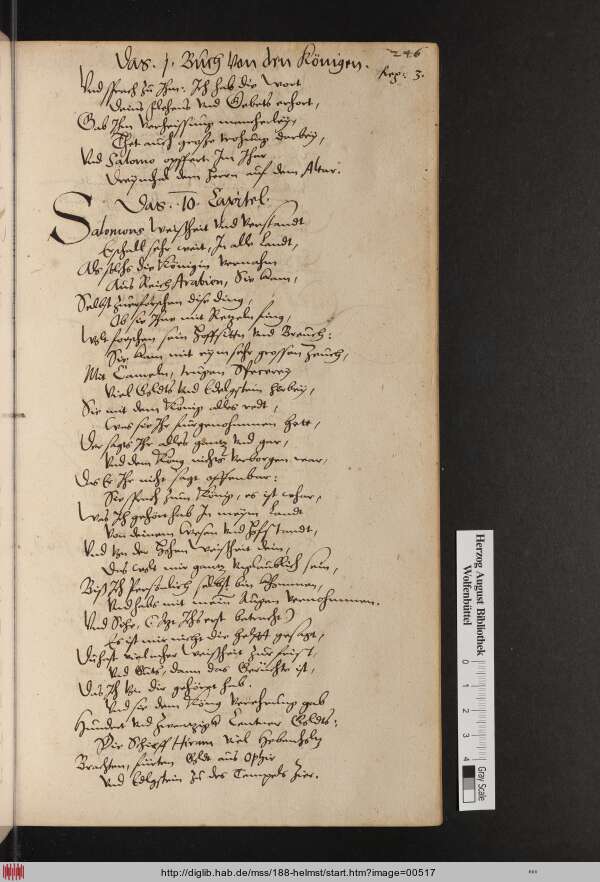 246
Das. 1. Buch Von den Königen.
Reg: 3.
Vnd sprach zu Ihm: Ich hab die Wort
Deins flehens Vnd Gebets erhort,
Gab Ihm Verheissung mancherley,
Thet auch grosse trohung darbey,
Vnd Salomo opffert Im Jhar
Dreymhal dem Herrn auf dem Altar.
Das. 10. Capitel.
Salomons Weissheit Vnd Verstandt
Erschall sehr weit, In alle Landt,
Als solchs die Königin Vernahm
Aus Reich Arabien, Sie kam,
Selbst zuerforschen dise ding,
Ob sie Ihne mit Retzeln fing,
Wolt forschen sein Hoffsittn Vnd Breuch:
Sie kam mit eym sehr grossen Zeuch,
Mit Cameln, trugen Specerey
Viel Goldts Vnd Edelgstein darbey,
Sie mit dem König alles redt,
Was sie Ihr furgenohmmen hett,
Der sagts Ihr alles gantz Vnd gar,
Vnd dem König nichts Verborgen war,
Das Er Ihr nicht sagt offenbar:
Sie sprach zum König, es ist whar,
Was Ich gehört hab In meym Landt
Von deinem Wesen Vnd Hofstandt,
Vnd Von der Hohen Weissheit dein,
Das wolt mir gantz Unglaublich sein,
Biss Ich Persönlich selbst bin khommen,
Vnd habs mit mein Augen Vernohmmen.
Vnd Sihe, (
Es ist mir nicht die helfft gesagt,
Du hast viel mher Weissheit
Vnd Guts, dann das Gerüchte ist,
Das Ich Von dir gehöret hab
Vnd sie dem König Verehrung gab
Hundert Vnd Zwentzigk Centner Goldts:
Die Schiff Hiram Viel Hebenholtz
Brachten, fürten Goldt aus Ophir
Vnd Edlgstein zu des Tempels Zier.
Herzog August Bibliothek
Wolfenbüttel
0 1 2 3 4
Gray Scale
http://diglib.hab.de/mss/188-helmst/start.htm?image=00517